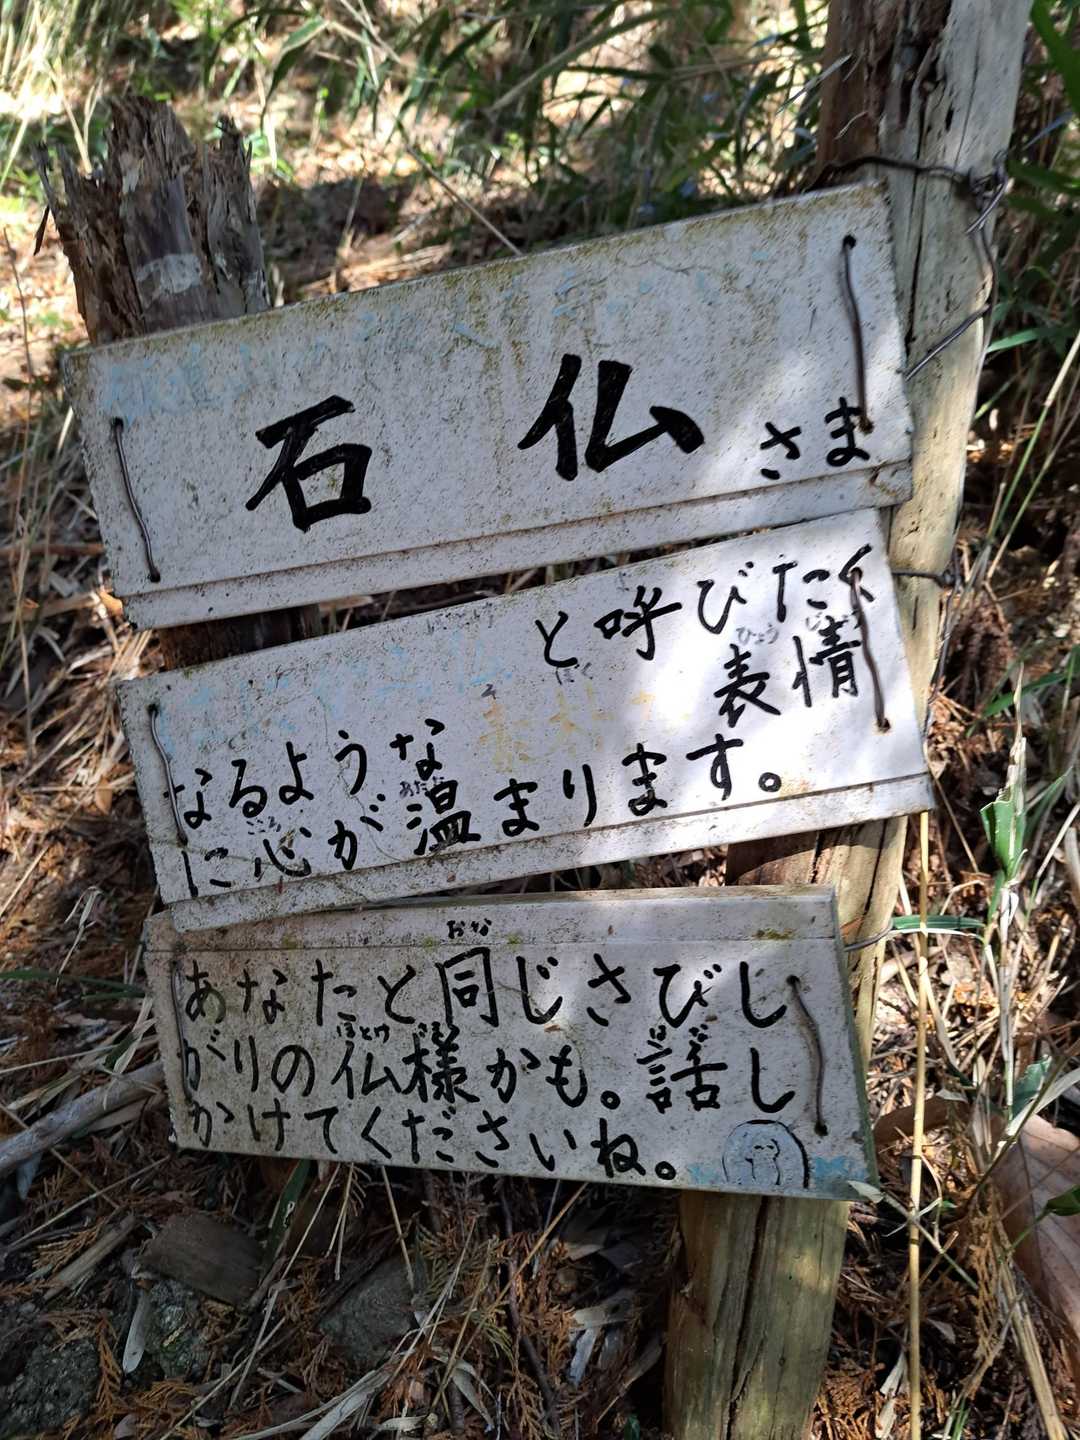 石仏さま
と呼びたく
なるような素朴な表情
に心が温まります。
あなたと同じさびし
がりの仏様かも。話し
かけてくださいね。